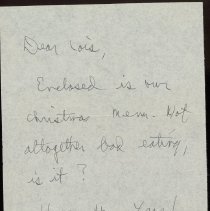 Dear Lois,
Enclosed is our
Christmas Menu. Not
altogether bad eating,
is it?